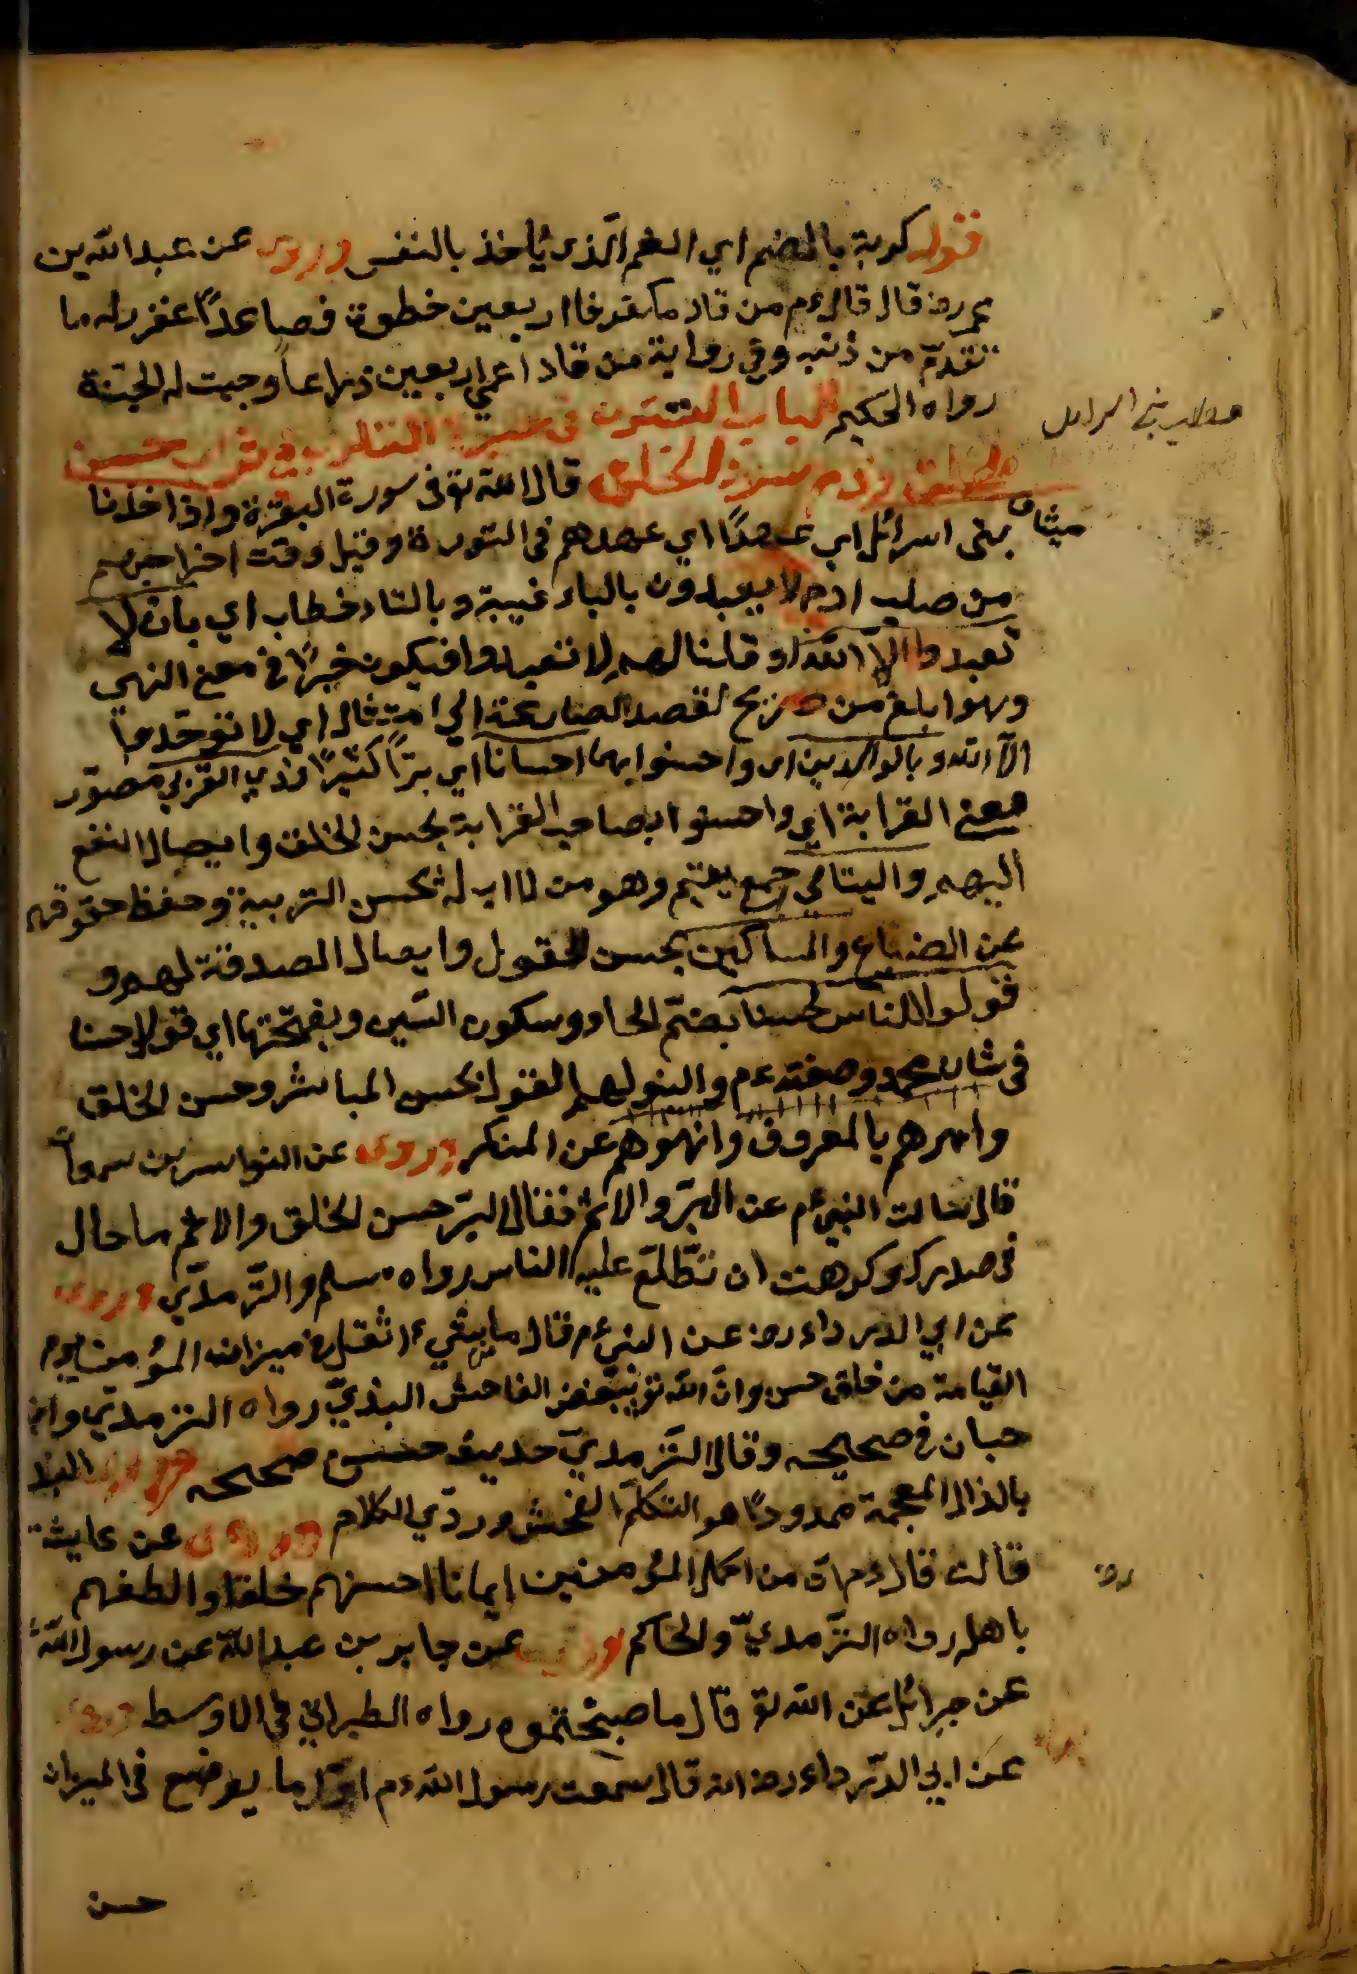 قوله كربة بالضم اي الغم الذي يأخذ بالنفس وروى عن عبد الله بن
عمر رض قال قال عم من قاد مكفوفا اربعين خطوة فصاعدًا غفر له ما
تقدّم من ذنبه وفي رواية من قاد اعمى اربعين ذراعاً وجبت له الجنّة
رواه الحكيم الباب الستون في في ثواب حسن
الخلق وذم سوء الخلق قال الله تع في سورة البقرة واذ اخذنا
ميثاق بنى اسرائل اي عهدًا اي عهدهم في التورية وقيل وقت اخراجهم
من صلب ادم لا يعبدون بالياء غيبة وبالتاء خطاب اي بان لا
تعبدوا الاّ الله او قلنا لهم لا تعبدوا فيكون خبرًا في معنى النهي
وهو ابلغ من صريح لقصد المسارعة الى امتثال اي لا توحّدوا
الاّ الله وبالوالدين اى واحسنوا بهما احسانا اي برًّا كثيرًا وذي القربى مصوّر
معنى القرابة اي واحسنوا بصاحب القرابة بحسن الخلق وايصال النفع
اليهم واليتامى جمع يتيم وهو من لا اب له بحسن التربية وحفظ حقوقهم
عن الضياع والمساكين بحسن القول وايصال الصدقة لهم و
قولوا للناس حسنا بضمّ الحاء وسكون السّين وبفتحتها اي قولا حسنا
في شان محمد وصفته عم والينوا لهم القول بحسن المباشر وحسن الخلق
وامرهم بالمعروف وانهوهم عن المنكر وروى عن النواس بن سمعان
قال سالت النبي عم عن البرّ والاثم فقال البرّ حسن الخلق والاثم ما حال
في صدرك وكرهت ان تطّلع عليه الناس رواه مسلم والتّرمذيّ وروى
عن ابي الدرداء رض عن النبي عم قال ما شيء اثقل في ميزان المؤمن يوم
القيامة من خلق حسن وانّ الله تع يبغض الفاحش البذيّ رواه الترمذيّ وابن
حبان في صحيحه وقال التّرمذيّ حديث حسن صحيحه قوله البذ
بالذال المعجمة ممدودًا هو التكلّم الفحش وردّي الكلام وروى عن عايشة
رض
قالت قال عم انّ من اكمل المؤمنين ايمانا احسنهم خلقا والطفهم
باهله رواه التّرمذيّ والحاكم وروى عن جابر بن عبد الله عن رسول الله
عن جبرائل عن الله تع قال ما صحبتموه رواه الطبراني في الاوسط وروى
عن ابي الدّرداء رض انه قال سمعت رسول الله عم اوّل ما يوضع في الميزان
حسن